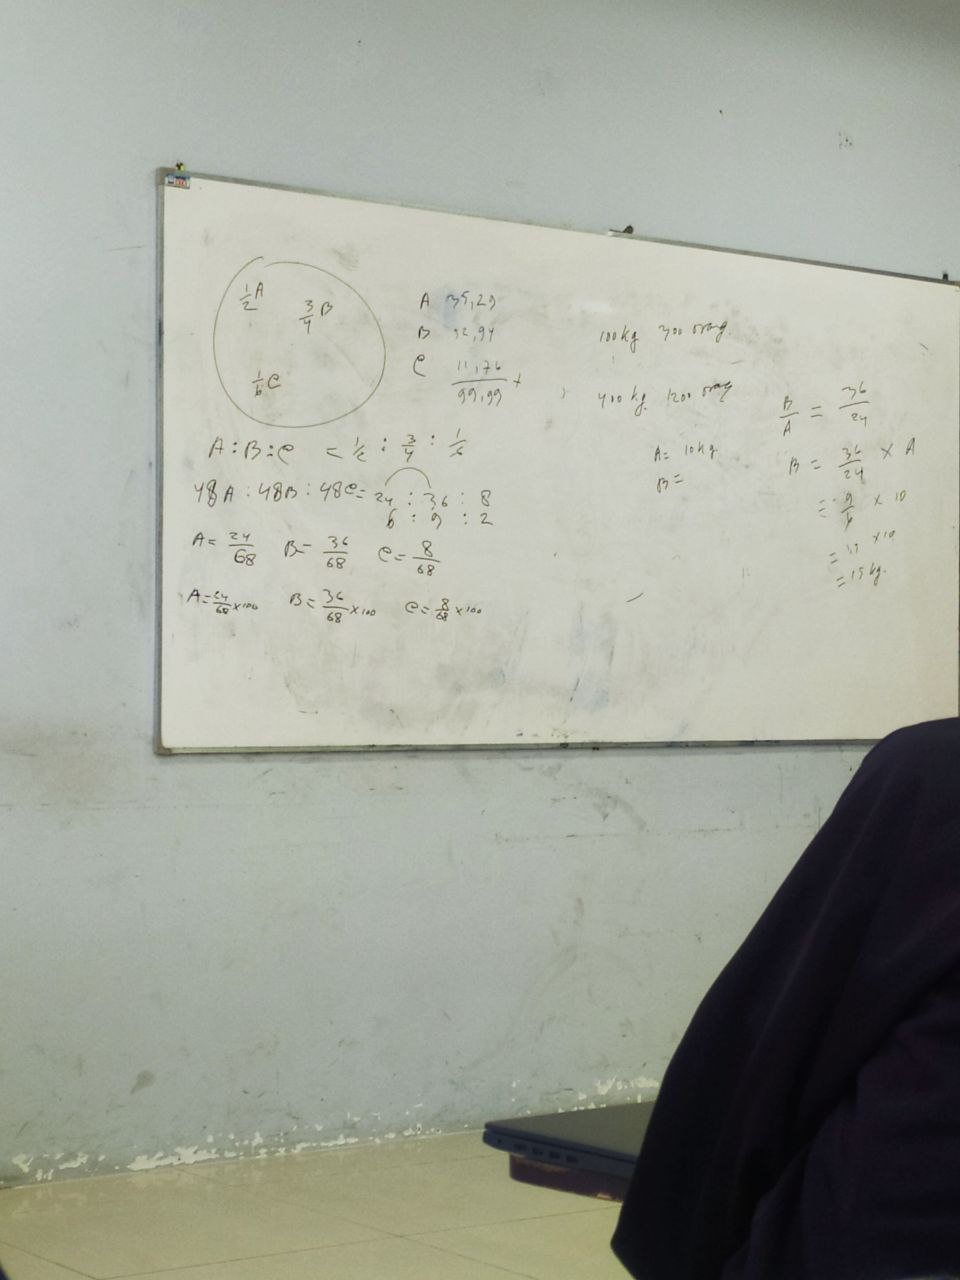 1/2 A
3/4 B
1/6 C
A 35,29
B 52,94
C 11,76 +
99,99
A : B : C = 1/2 : 3/4 : 1/6
48A : 48B : 48C = 24 : 36 : 8
6 : 9 : 2
A = 24/68 B = 36/68 C = 8/68
A = 24/68 × 100 B = 36/68 × 100 C = 8/68 × 100
100 kg 300 orang
400 kg 1200 orang
A = 10 kg
B =
B/A = 36/24
B = 36/24 × A
= 9/6 × 10
= × 10
= 15 kg.